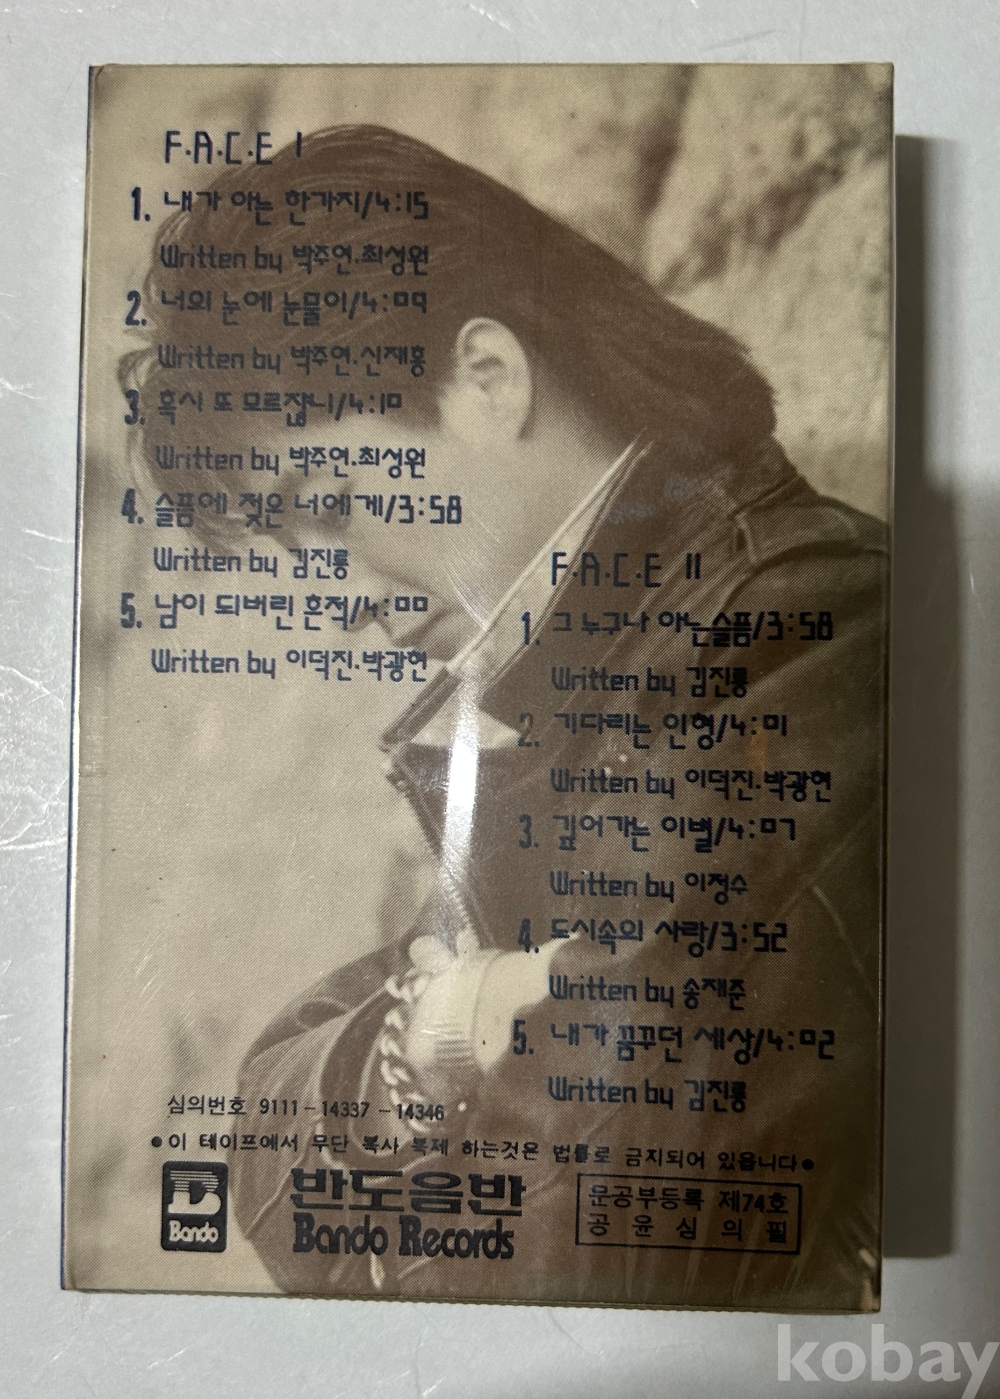 F·A·C·E I
1. 내가 아는 한가지/4:15
Written by 박주연·최성원
2. 너의 눈에 눈물이/4:09
Written by 박주연·신재홍
3. 혹시 또 모르잖니/4:10
Written by 박주연·최성원
4. 슬픔에 젖은 너에게/3:58
Written by 김진룡
5. 남이 되버린 흔적/4:00
Written by 이덕진·박광현
F·A·C·E II
1. 그 누구나 아는 슬픔/3:58
Written by 김진룡
2. 기다리는 인형/4:01
Written by 이덕진·박광현
3. 깊어가는 이별/4:07
Written by 이정수
4. 도시속의 사랑/3:52
Written by 송재준
5. 내가 꿈꾸던 세상/4:02
Written by 김진룡
심의번호 9111-14337-14346
●이 테이프에서 무단 복사 복제 하는것은 법률로 금지되어 있읍니다●
Bando
반도음반
Bando Records
문공부등록 제74호
공윤심의필
kobay